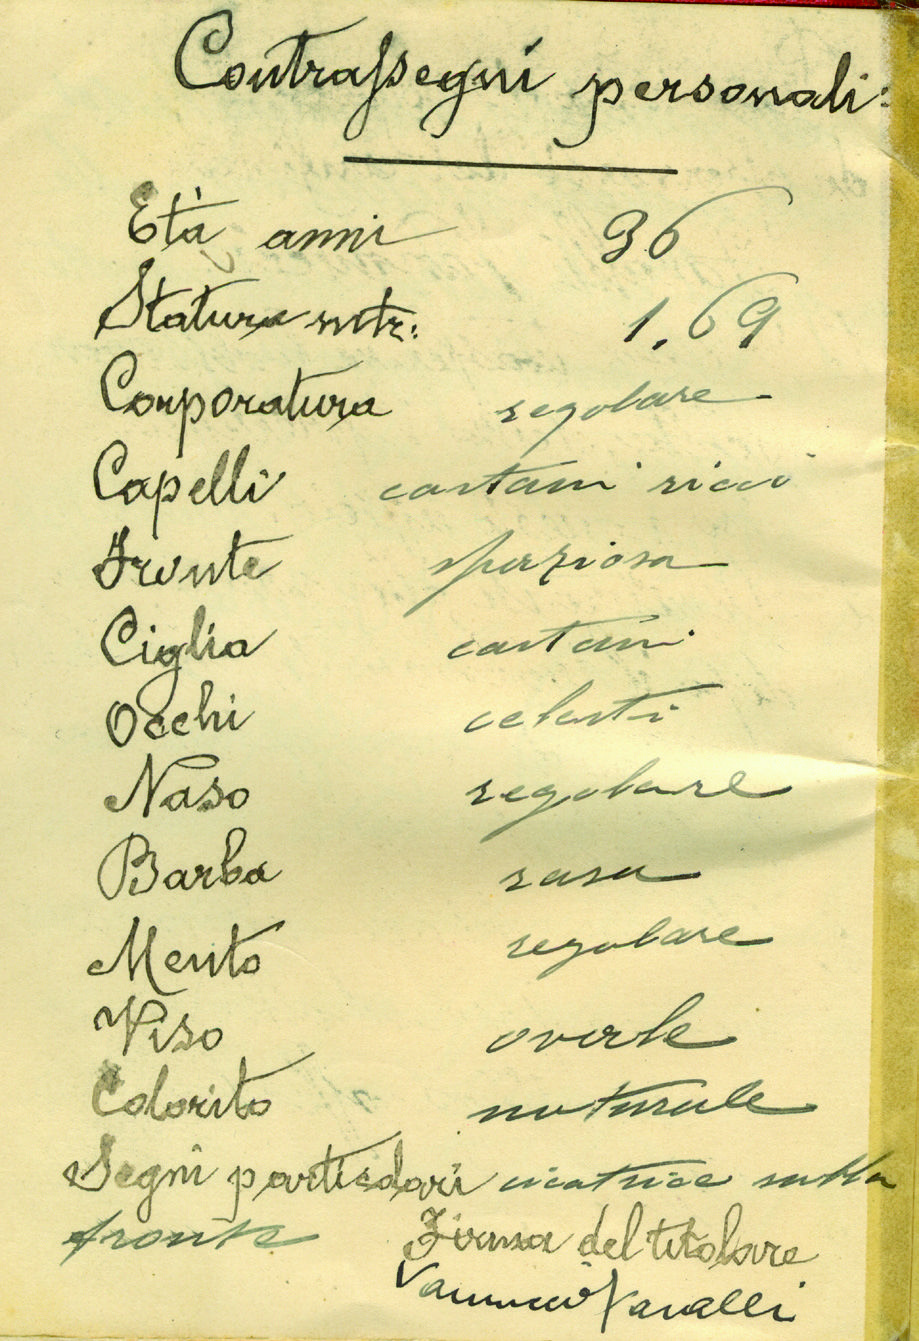 Contrassegni personali:
Età anni 36
Statura mtr: 1,69
Corporatura regolare
Capelli castani ricci
Fronte spaziosa
Ciglia castani
Occhi celesti
Naso regolare
Barba rasa
Mento regolare
Viso ovale
Colorito naturale
Segni particolari cicatrice sulla
fronte Firma del titolare
Vannuccio Faralli